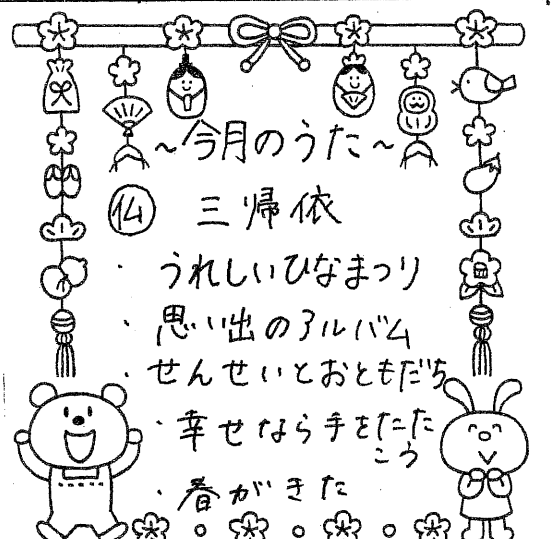 ～今月のうた～
仏 三帰依
・うれしいひなまつり
・思い出のアルバム
・せんせいとおともだち
・幸せなら手をたた
こう
・春がきた